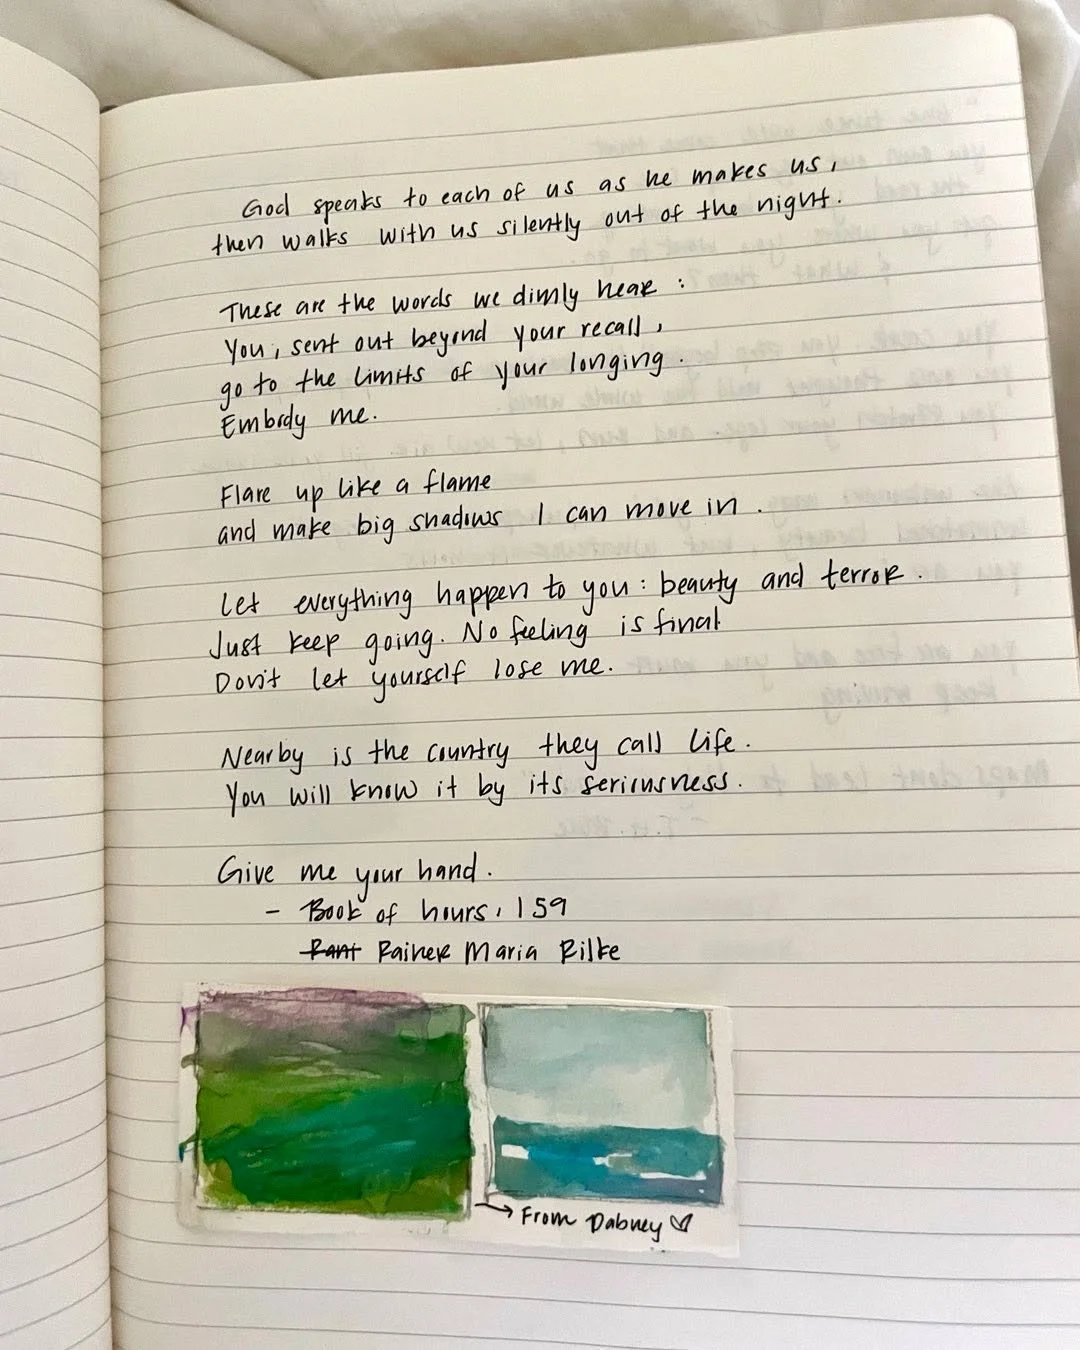 God speaks to each of us as he makes us,
then walks with us silently out of the night.
These are the words we dimly hear :
You, sent out beyond your recall,
go to the limits of your longing.
Embody me.
Flare up like a flame
and make big shadows I can move in.
Let everything happen to you : beauty and terror.
Just keep going. No feeling is final
Don't let yourself lose me.
Nearby is the country they call life.
You will know it by its seriousness.
Give me your hand.
- Book of hours, 159
Rant Rainer Maria Rilke
→ From Dabney ♡